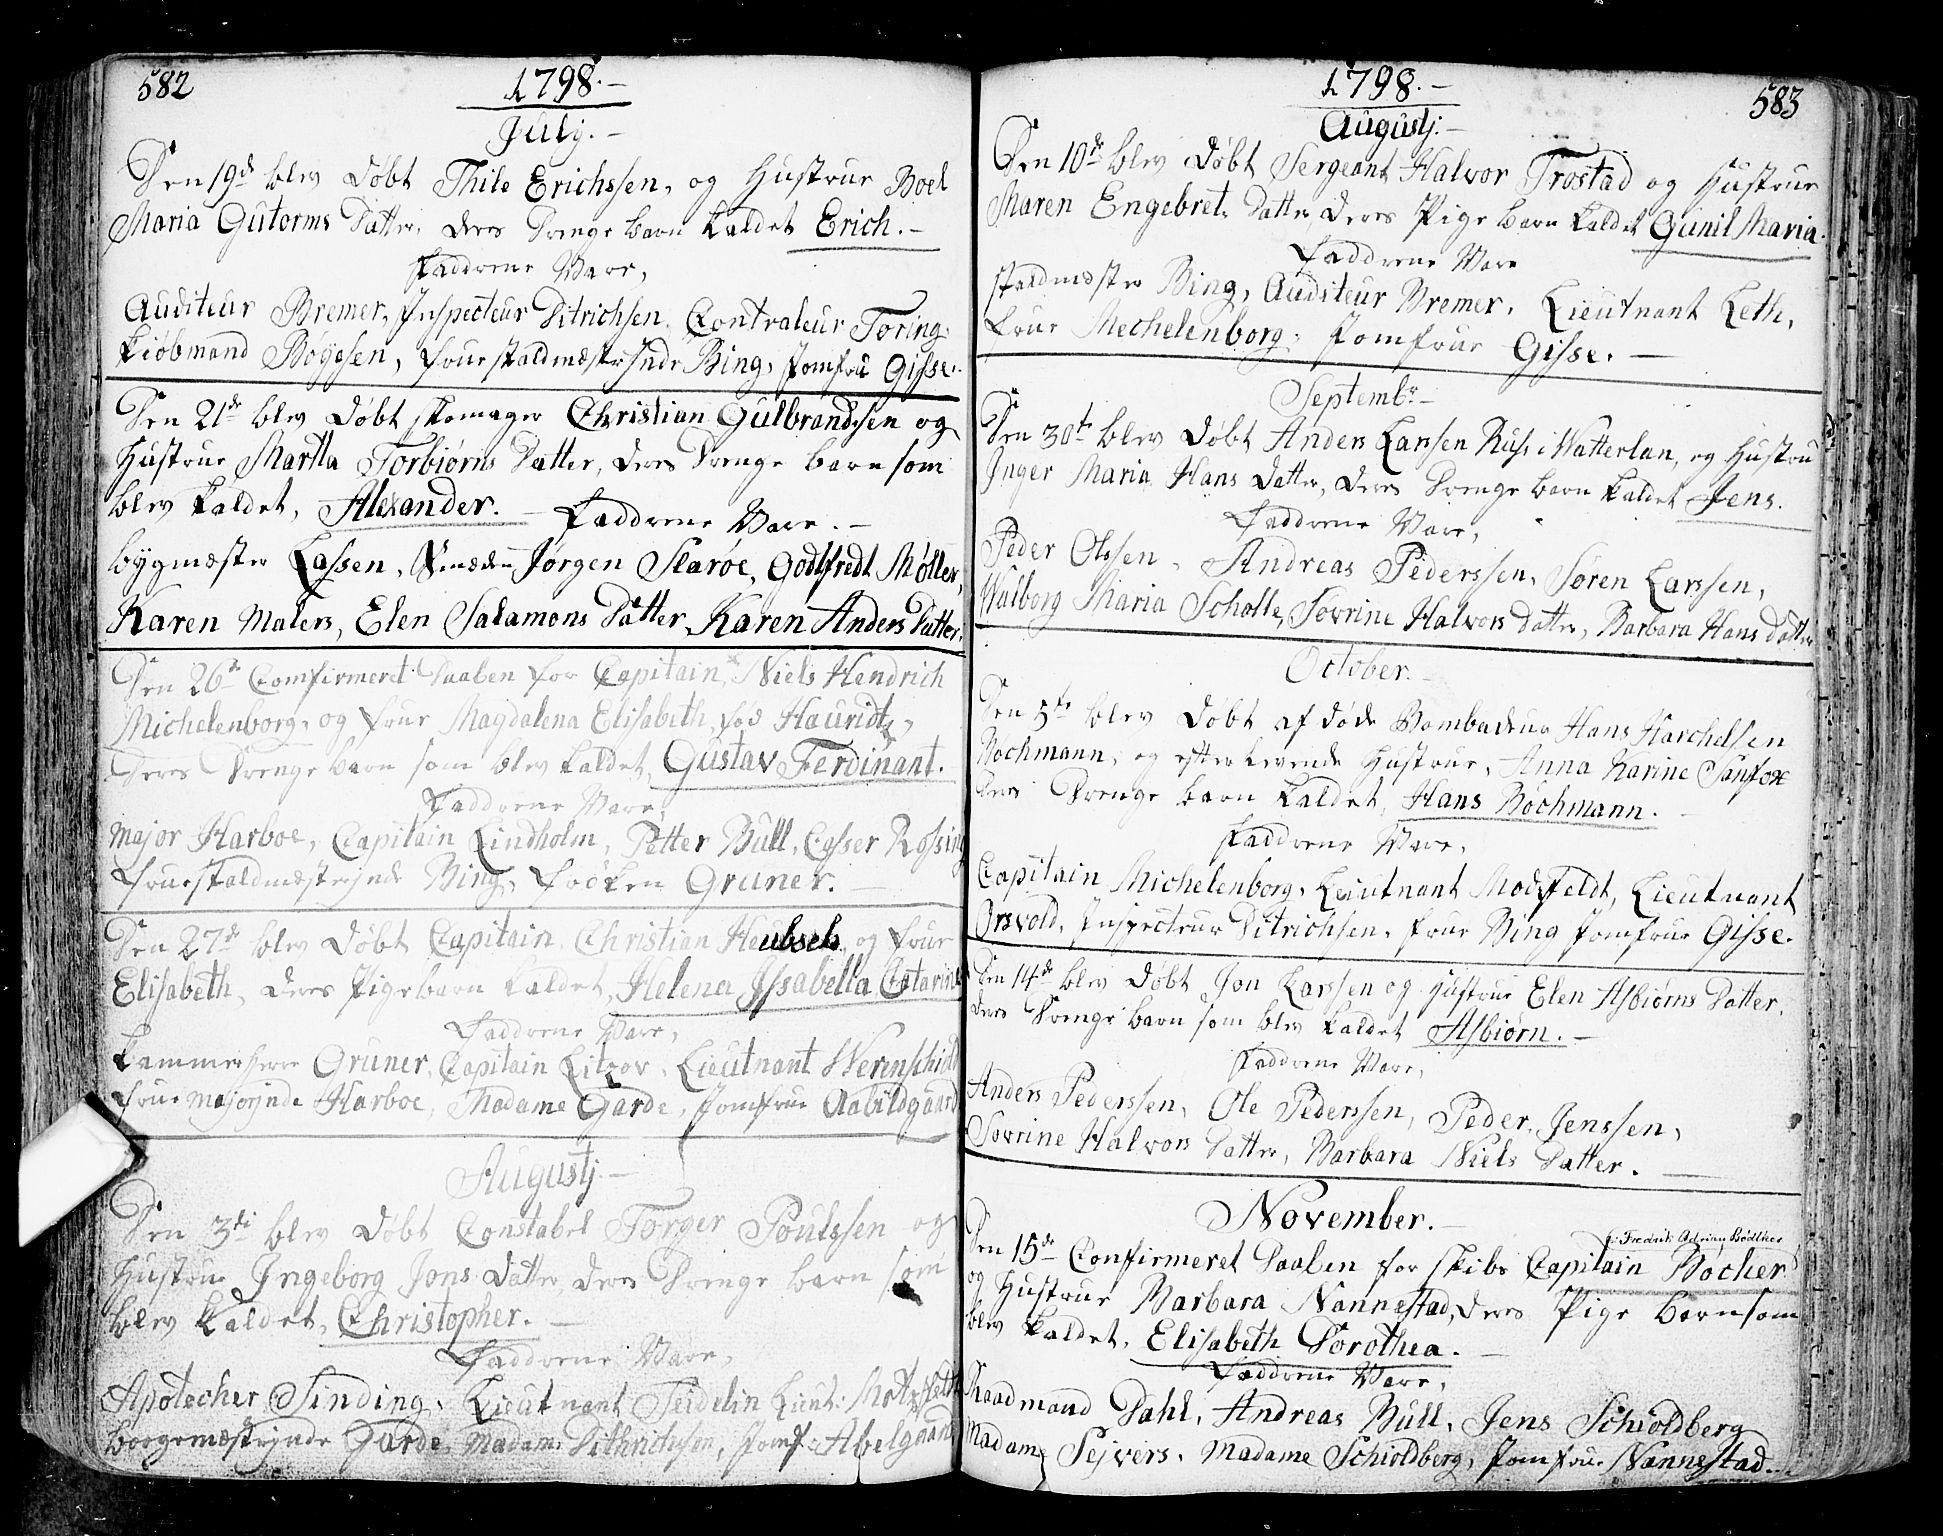 582
1798.-
July.-
Den 19de blev Døbt Thilo Erichssen, og Hustrue Boel
Maria Gutorms Datter, deres Drenge barn kaldet Erich.-
Faddrene Vare,
Auditeur Bremer, Inspecteur Ditrichsen, Contraleur Toring,
Kiøbmand Boyesen, Frue Staldmæsterinde Bing, Jomfru Gisse.
Den 21de blev Døbt Skomager Christian Gulbrandssen og
Hustrue Martta Torbiørns Datter, deres Drenge barn som
blev kaldet, Alexander.- Faddrene Vare.-
Bygmæster Lassen, Jørgen Slarøe, Godtfredt Møller,
Karen Malers, Elen Salamons Datter, Karen Anders Datter.
Den 26de Comfirmeret Daaben for Capitain, Niels Hendrich
Michelenborg, og Frue Magdalena Elisabeth, fød Hauridtz,
Deres Drenge barn som blev kaldet, Gustav Ferdinant.
Faddrene Vare,
Major Harboe, Capitain Lindholm, Petter Bull, Casser Rossing
Frue Staldmæsterinde Bing, Frøken Gruner.-
Den 27de blev Døbt Capitain, Christian Heubsch og Frue
Elisabeth, deres Pige barn kaldet, Helena Issabella Catarina
Faddrene Vare,
Kammerherre Gruner, Capitain Litzov, Lieutnant Wernschiold
Frue Majorinde Harboe, Madame Garde, Jomfrue Aabildgaard
Augustj.-
Den 3di blev Døbt Constabel Torger Poulssen og
Hustrue Ingeborg Jons Datter, deres Drenge barn som
blev kaldet, Christopher.-
Faddrene Vare,
Apotecher Sinding, Lieutnant Seidelin Lieut:
Borgemæsterinde Garde, Madam Dithrichsen, Jomf: Abelgaard
1798.-
583
Augustj.-
Den 10de blev Døbt Sergeant Halvor Trostad og Hustrue
Maren Engebrets Datter, deres Pige barn kaldet Gunil Maria.
Faddrene Vare
Staldmæster Bing, Auditeur Bremer, Lieutnant Leth,
Frue Mechelenborg, Jomfrue Gisse.-
Septembr-
Den 30te blev Døbt Anders Larsen Russ i Watterlan, og Hustru
Inger Maria Hans Datter, deres Drenge barn kaldet Jens.
Faddrene Vare,
Peder Olssen, Andreas Pederssen, Søren Larssen,
Walborg Maria Scholle, Sovrine Halvors Datter, Barbara Hans Datter
October.-
Den 5te blev Døbt af døde Bombadeur Hans Harchelsen
Bochmann, og efterlevende Hustrue, Anna Karine Sanfox
deres Drenge barn kaldet, Hans Bochmann.-
Faddrene Vare,
Capitain Michelenborg, Lieutnant Modtzfeldt, Lieutnant
Orsvold, Inspecteur Ditrichsen, Frue Bing Jomfrue Gisse.
Den 14de blev Døbt Jon Larssen og Hustrue Elen Asbiørns Datter,
deres Drenge barn som blev kaldet Asbiørn.-
Faddrene Vare,
Anders Pederssen, Ole Pederssen, Peder Jenssen,
Sovrine Halvors Datter, Barbara Niels Datter.-
November.-
Fredrik Adrian Bødtker
Den 15de Confirmeret Daaben for Skibs Capitain Bøcher
og Hustrue Barbara Nannestad, deres Pige barn som
blev kaldet, Elisabeth Dorothea.-
Faddrene Vare,
Raadmand Dahl, Andreas Bull, Jens Schioldberg
Madam Sejvers, Madame Schioldberg, Jomfrue Nannestad.-